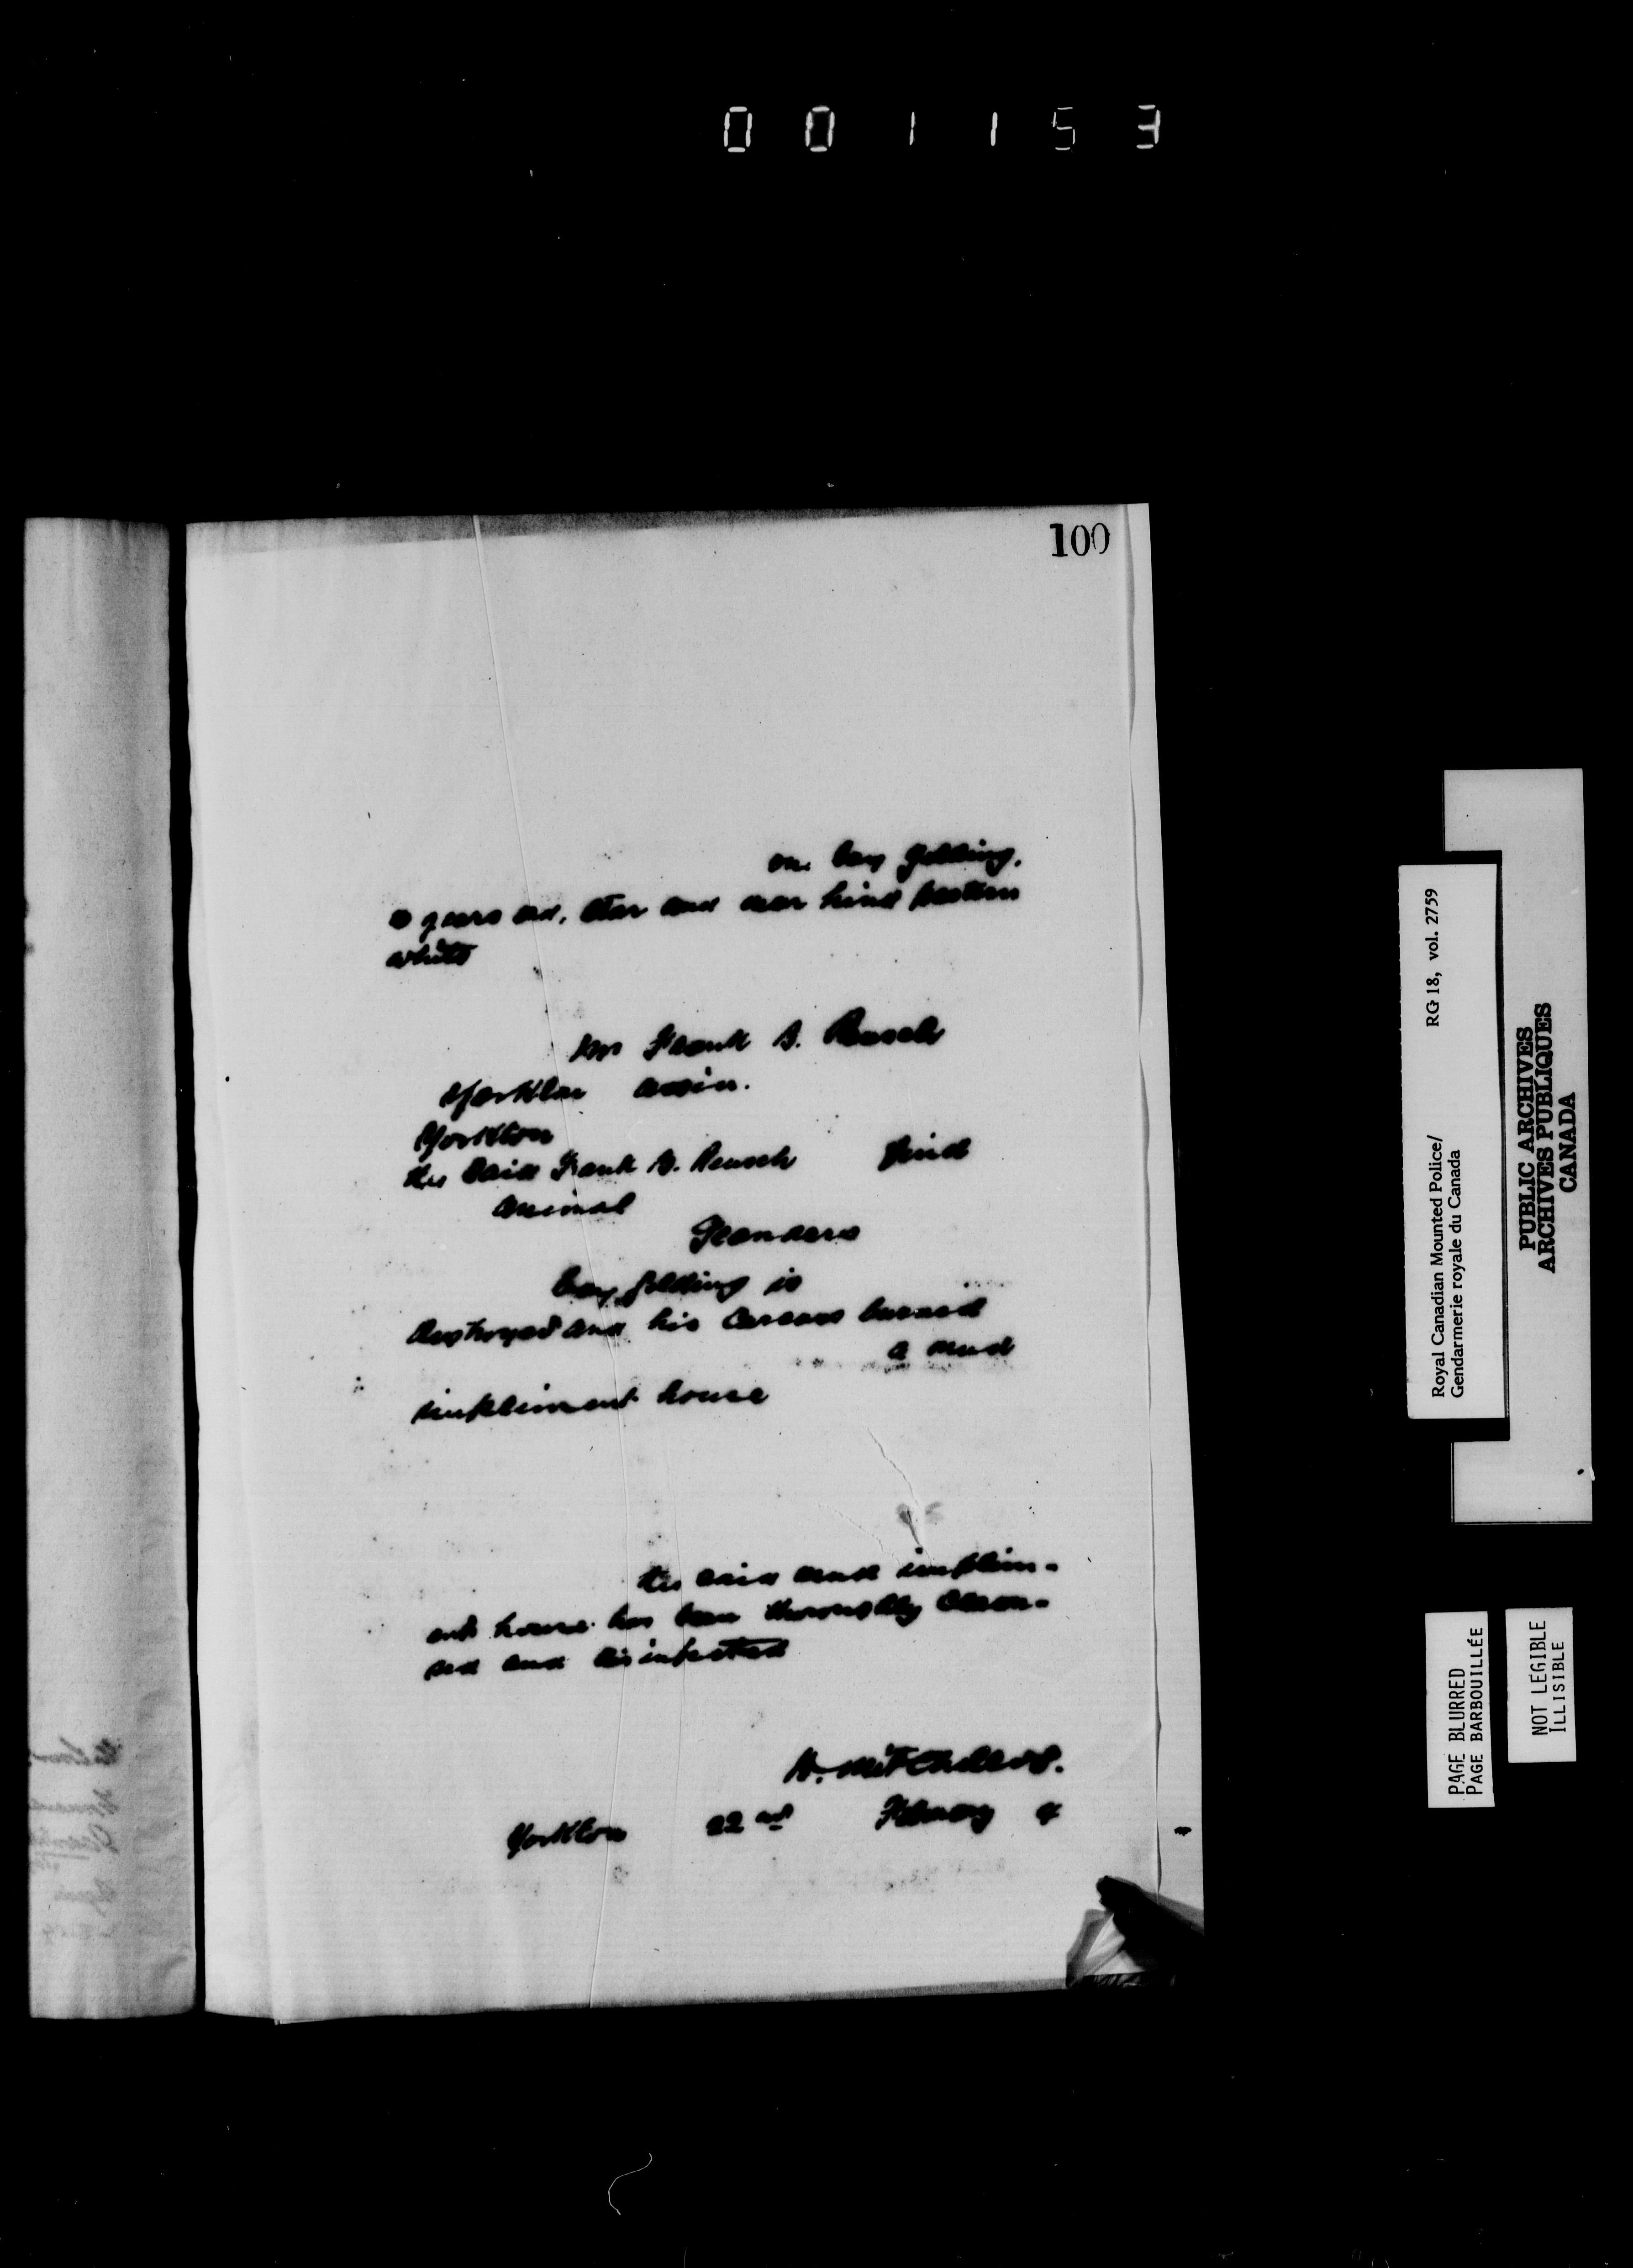 001153
100
one bay gelding,
years old, star and near hind pastern
white
Mr Frank S. Reusch
Yorkton Assin.
Yorkton
the said Frank S. Reusch kind
animal
Glanders
bay gelding is
destroyed and his carcass burned
a mud
impliment house
the said mud implim-
ent house has been thoroughly clean-
sed and disinfected
Yorkton 22nd February 4
Royal Canadian Mounted Police/ RG 18, vol. 2759
Gendarmerie royale du Canada
PUBLIC ARCHIVES
ARCHIVES PUBLIQUES
CANADA
PAGE BLURRED
PAGE BARBOUILLÉE
NOT LEGIBLE
ILLISIBLE